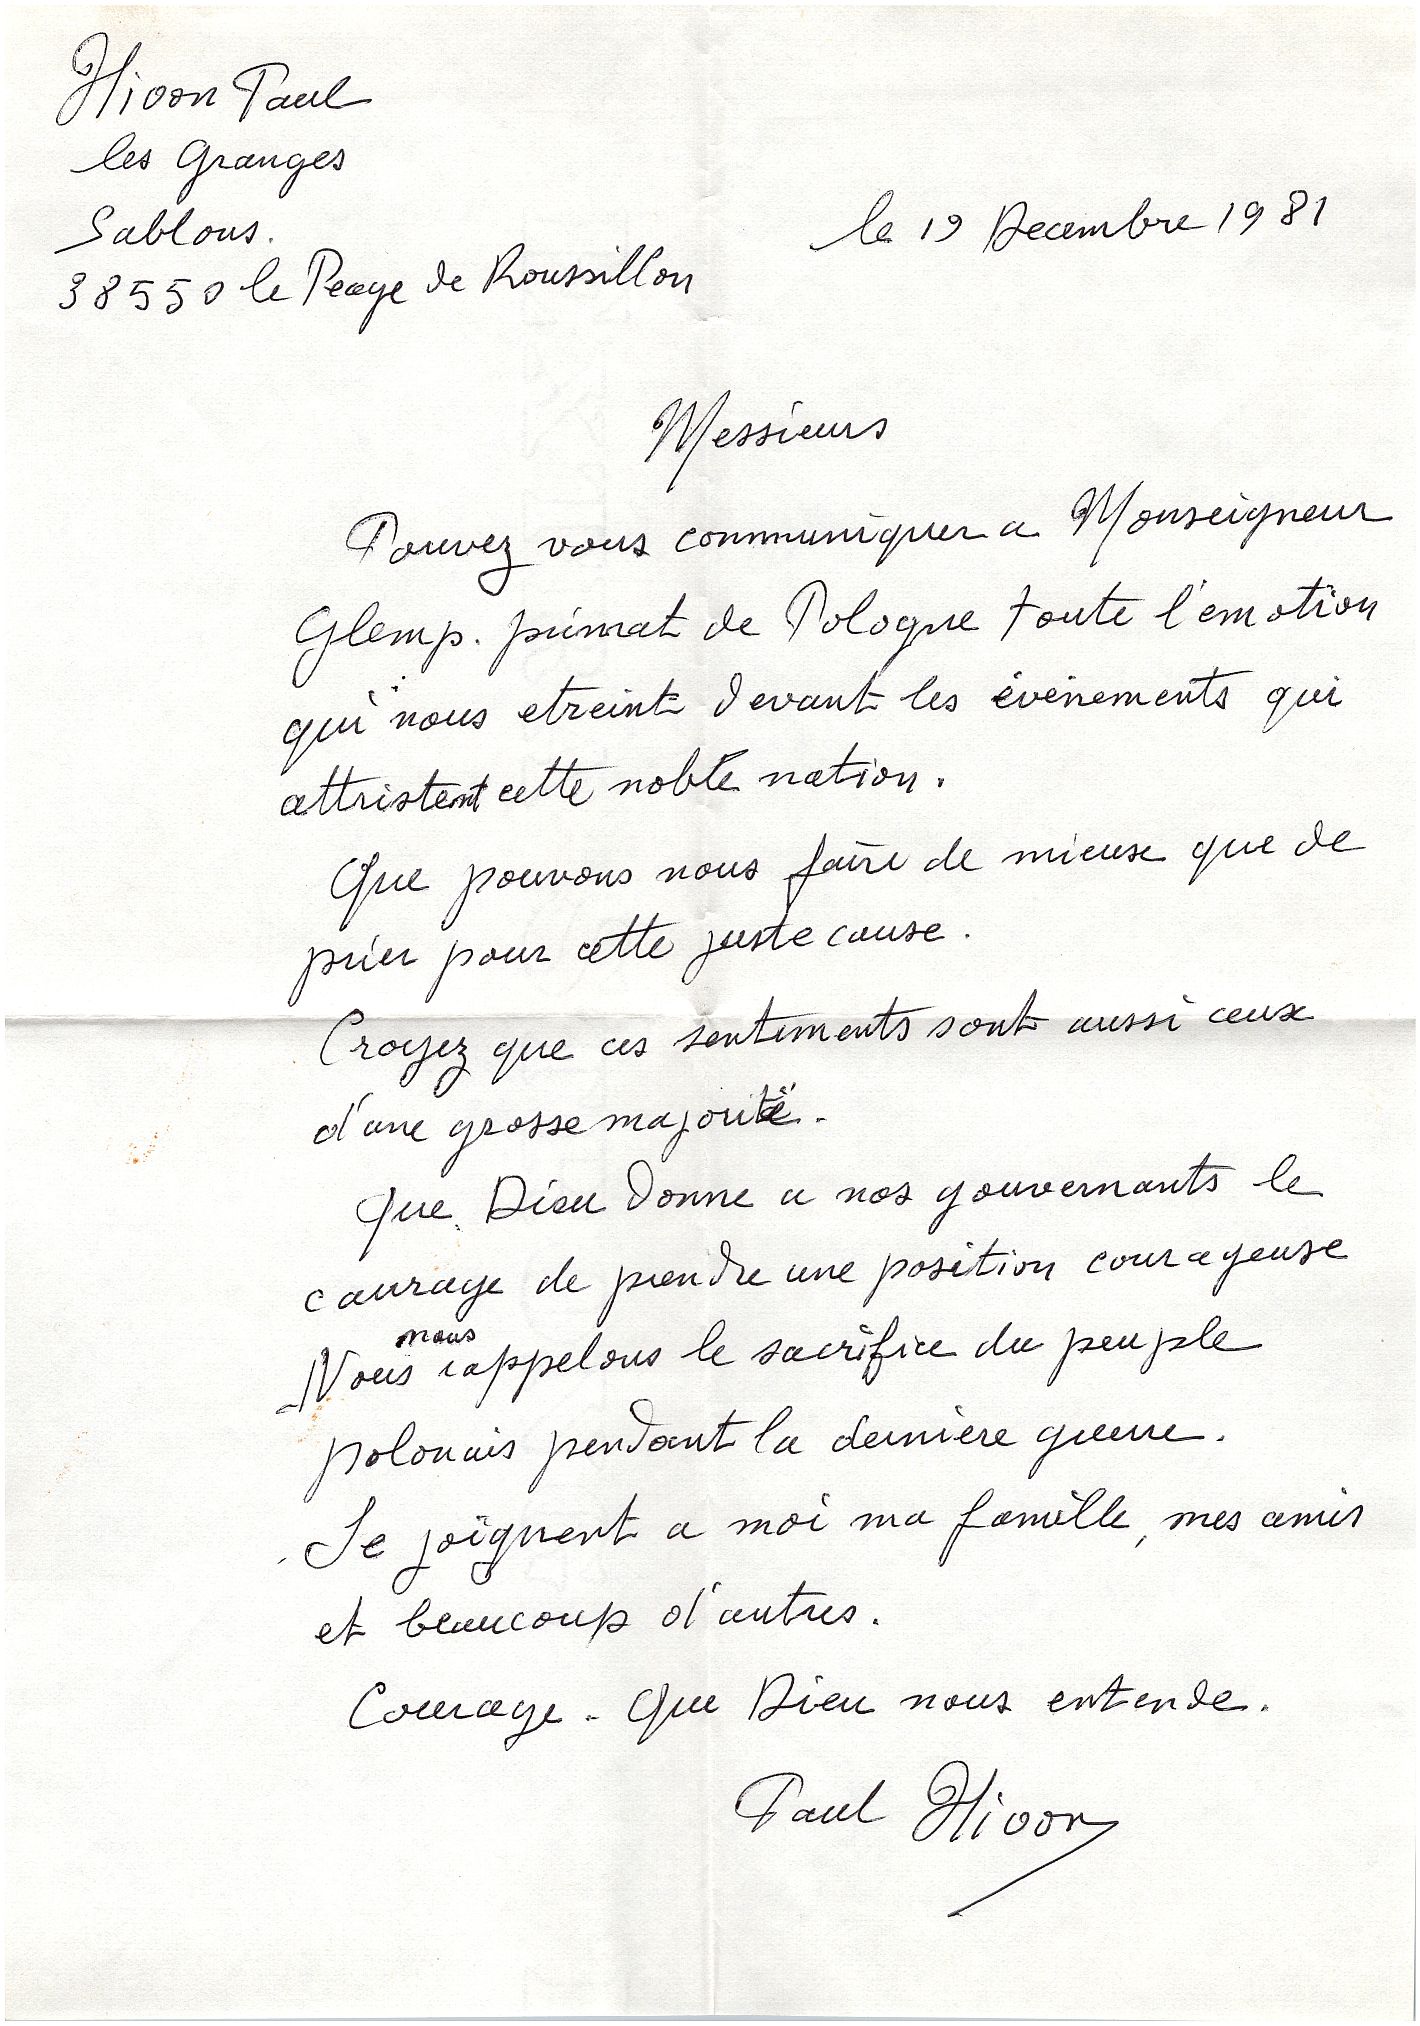 Hivon Paul
les Granges
Sablons.
38550 le Peage de Roussillon
le 19 Decembre 1981
Messieurs
Pouvez vous communiquer a Monseigneur
Glemp. primat de Pologne toute l'emotion
qui nous etreint devant les événements qui
attristent cette noble nation.
Que pouvons nous faire de mieux que de
prier pour cette juste cause.
Croyez que ces sentiments sont aussi ceux
d'une grosse majorité.
Que Dieu donne a nos gouvernants le
courage de prendre une position courageuse
Nous nous rappelons le sacrifice du peuple
polonais pendant la derniere guerre.
Se joignent a moi ma famille, mes amis
et beaucoup d'autres.
Courage. Que Dieu nous entende.
Paul Hivon